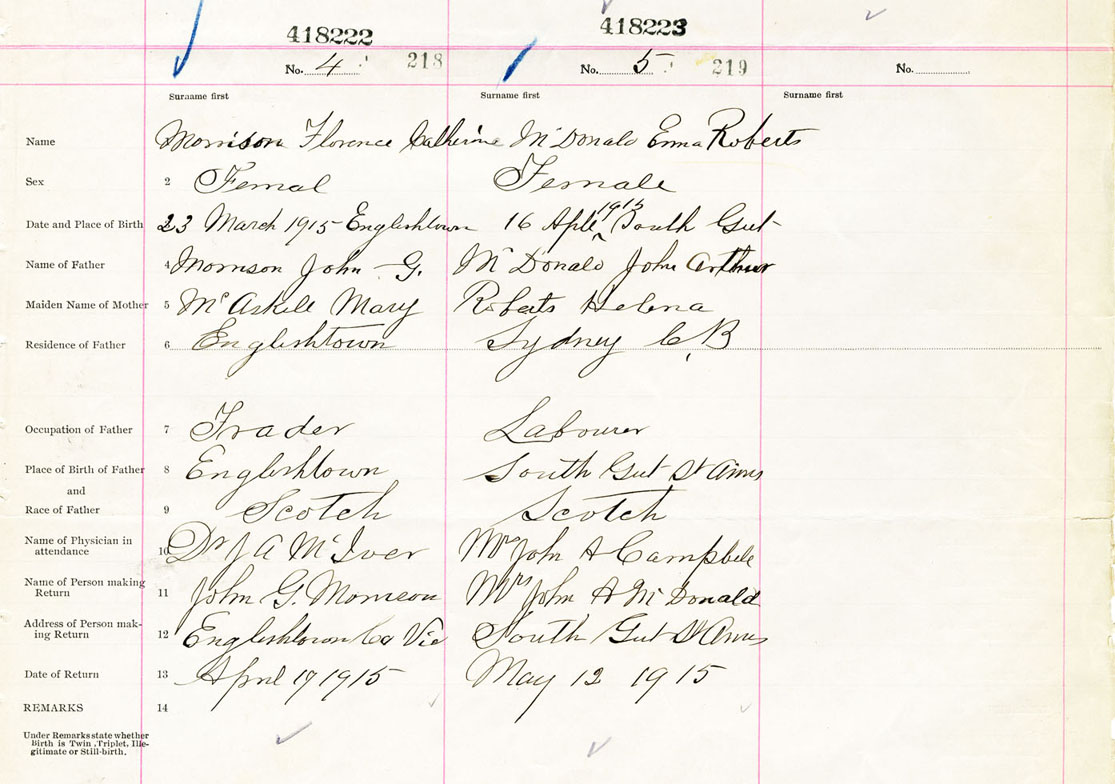 418222 418223
No. 4 218 No. 5 219 No.
Surname first Surname first Surname first
Name Morrison Florence Catherine McDonald Emma Roberts
Sex 2 Femal Female
Date and Place of Birth 23 March 1915 Englishtown 16 Aple 1915 South Gut
Name of Father 4 Morrison John G. McDonald John Arthur
Maiden Name of Mother 5 McAskill Mary Roberts Helena
Residence of Father 6 Englishtown Sydney C.B
Occupation of Father 7 Trader Labourer
Place of Birth of Father 8 Englishtown South Gut St Anns
and
Race of Father 9 Scotch Scotch
Name of Physician in
attendance 10 Dr J A McIver Mrs John A Campbell
Name of Person making
Return 11 John G. Morrison Mrs John A McDonald
Address of Person mak-
ing Return 12 Englishtown Co Vic South Gut St Anns
Date of Return 13 April 17 1915 May 12 1915
REMARKS 14
Under Remarks state whether
Birth is Twin, Triplet, Ille-
gitimate or Still-birth.